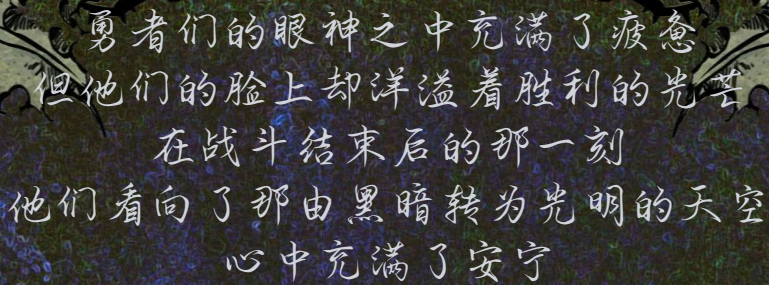 勇者们的眼神之中充满了疲惫
但他们的脸上却洋溢着胜利的光芒
在战斗结束后的那一刻
他们看向了那由黑暗转为光明的天空
心中充满了安宁